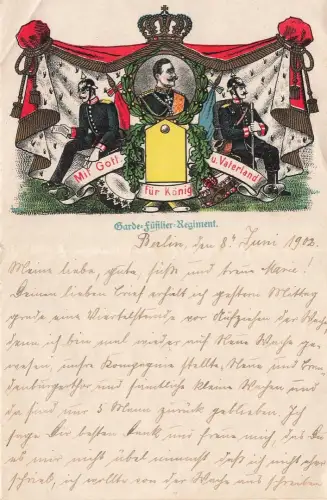 Mit Gott
für König
u. Vaterland
Garde-Füsilier-Regiment.
Berlin, den 8. Juni 1902.
Meine liebe, gute, süße und treue Marie!
Deinen lieben Brief erhielt ich gestern Mittag
grade eine Viertelstunde vor Aufziehen der Wache
denn ich bin mal wieder auf Neue Wache ge-
wesen, unsre Kompagnie stellte, Neue und Bran-
denburgerthor und sämtliche kleine Wachen und
da sind nur 5 Mann zurück geblieben. Ich
sage Dir besten Dank und freue mich, das Du
es mir nicht übel nimmst daß ich nicht eher
schrieb, ich wollte von der Wache aus schreiben